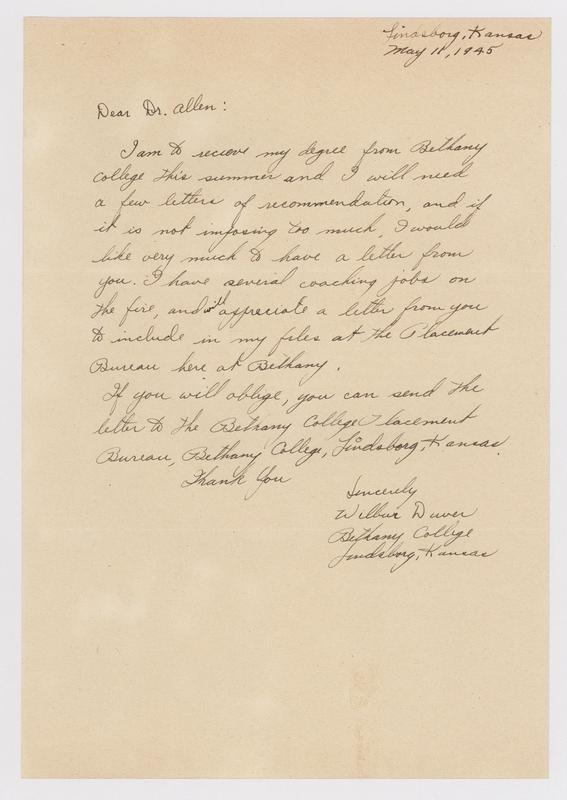 Lindsborg, Kansas
May 11, 1945
Dear Dr. Allen:
I am to recieve my degree from Bethany
College this summer and I will need
a few letters of recommendation, and if
it is not imposing too much, I would
like very much to have a letter from
you. I have several coaching jobs on
the fire, and will appreciate a letter from you
to include in my files at the Placement
Bureau here at Bethany.
If you will oblige, you can send the
letter to the Bethany College Placement
Bureau, Bethany College, Lindsborg, Kansas.
Thank You
Sincerely
Wilbur Duver
Bethany College
Lindsborg, Kansas